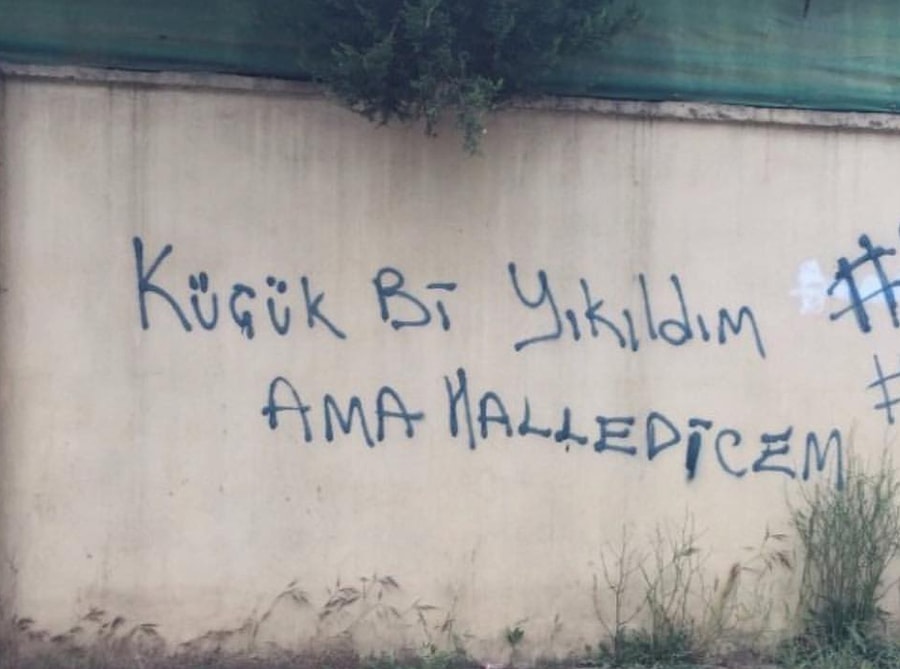 Küçük Bi Yıkıldım #
AMA HALLEDİCEM #